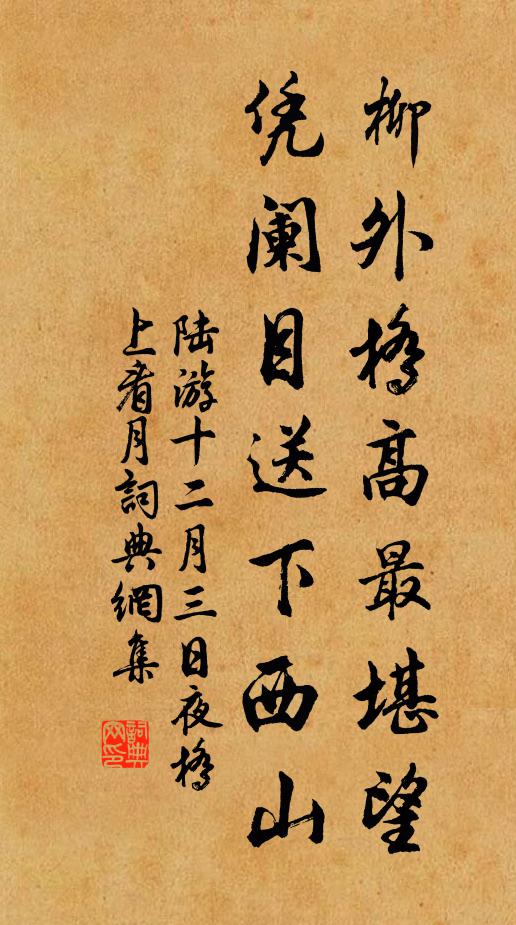 柳外橋高最堪望
凭阑目送下西山
陆游十二月三日夜橋
上看月詞典網集
詞典
网印